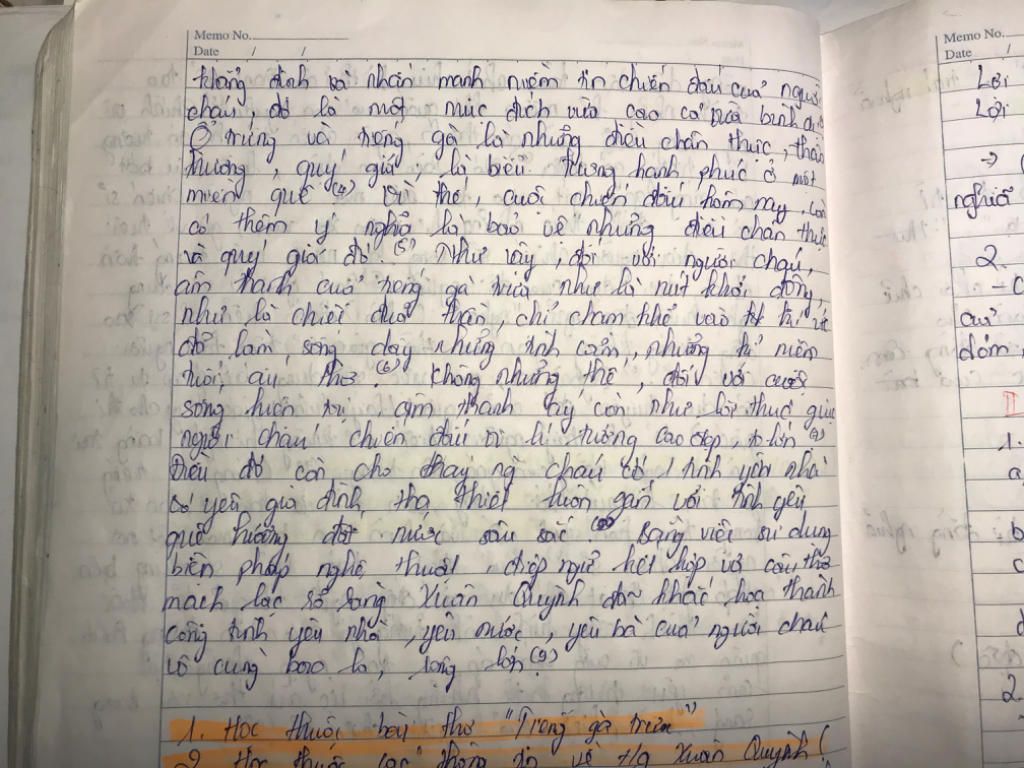 Memo No.
Date / /
khẳng định và nhấn mạnh niềm tin chiến đấu của người
cháu, đó là một mục đích vừa cao cả vừa bình dị.
Ổ trứng và tiếng gà là những điều chân thực, thân
thương, quý giá, là biểu tượng hạnh phúc ở một
miền quê (4) Vì thế, cuộc chiến đấu hôm nay còn
có thêm ý nghĩa là bảo vệ những điều chân thực
và quý giá đó. (5) Như vậy, đối với người cháu,
âm thanh của tiếng gà trưa như là nút khởi động,
như là chiếc đũa thần, chỉ chạm khẽ vào kí ức
để làm sống dậy những tình cảm, những kỉ niệm
tuổi ấu thơ. (6) Không những thế, đối với cuộc
sống hiện tại, âm thanh ấy còn như lời thúc giục
người cháu chiến đấu vì lí tưởng cao đẹp,
Điều đó còn cho thấy ng cháu có tình yêu nhà
có yêu gia đình tha thiết luôn gắn với tình yêu
quê hương đất nước sâu sắc Bằng việc sử dụng
biện pháp nghệ thuật điệp ngữ kết hợp với câu thơ
mạch lạc Xuân Quỳnh đã khắc họa thành
công tình yêu nhà, yêu nước, yêu bà của người cháu
vô cùng bao la, rộng lớn (9)
1. Học thuộc bài thơ "Tiếng gà trưa"
2. Học thuộc thông tin về t/g Xuân Quỳnh (
Memo No.
Date /
Lời
Lời
→ (
nghĩa
2.
- C
cứ
đóm,
I
1.
a
b
c
d
2.